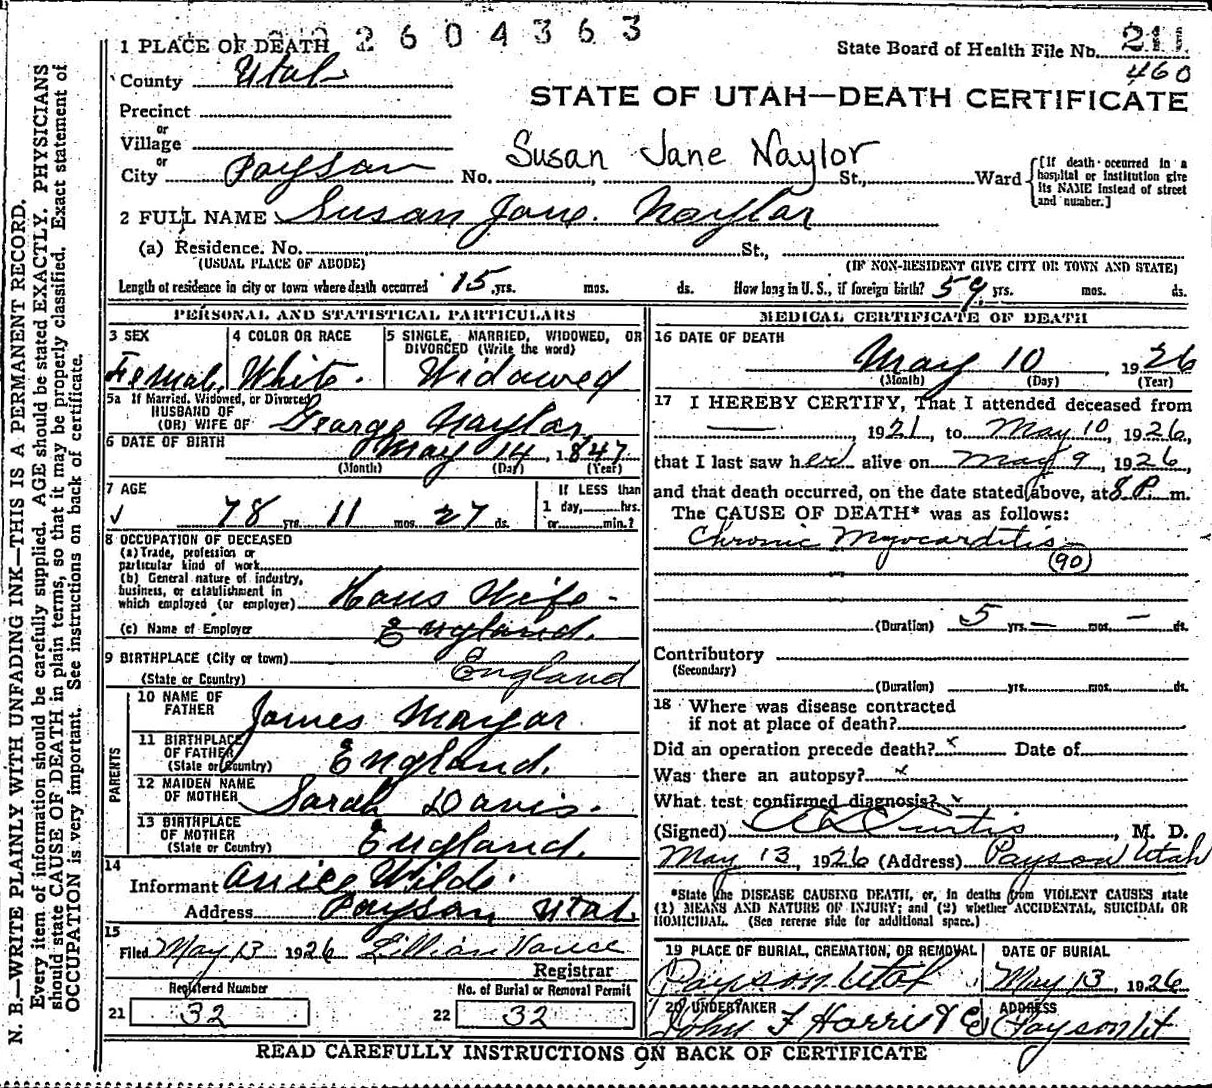 2604363
State Board of Health File No. 211
460
1 PLACE OF DEATH
County Utah
STATE OF UTAH—DEATH CERTIFICATE
Precinct
or
Village
or
Susan Jane Naylor
City Payson No. St., Ward
[If death occurred in a hospital or institution give its NAME instead of street and number.]
2 FULL NAME Susan Jane Naylor
(a) Residence. No. St.,
(USUAL PLACE OF ABODE) (IF NON-RESIDENT GIVE CITY OR TOWN AND STATE)
Length of residence in city or town where death occurred 15 yrs. mos. ds. How long in U. S., if foreign birth? 59 yrs. mos. ds.
PERSONAL AND STATISTICAL PARTICULARS
3 SEX
Female
4 COLOR OR RACE
White.
5 SINGLE, MARRIED, WIDOWED, OR DIVORCED (Write the word)
Widowed
5a If Married, Widowed, or Divorced
HUSBAND OF
(OR) WIFE OF George Naylor
6 DATE OF BIRTH May 14, 1847
(Month) (Day) (Year)
7 AGE
78 yrs. 11 mos. 27 ds.
If LESS than
1 day, hrs.
or min.?
8 OCCUPATION OF DECEASED
(a) Trade, profession or
particular kind of work
(b) General nature of industry,
business, or establishment in
which employed (or employer) Hous Wife
(c) Name of Employer England.
9 BIRTHPLACE (City or town)
(State or Country) England
PARENTS
10 NAME OF
FATHER James
11 BIRTHPLACE
OF FATHER
(State or Country) England.
12 MAIDEN NAME
OF MOTHER Sarah Davis.
13 BIRTHPLACE
OF MOTHER
(State or Country) England.
14
Informant Wilde.
Address Payson Utah
15
Filed May 13 1926 Lillian Vance
Registrar
Registered Number
21 32
No. of Burial or Removal Permit
22 32
MEDICAL CERTIFICATE OF DEATH
16 DATE OF DEATH
May 10, 1926
(Month) (Day) (Year)
17 I HEREBY CERTIFY, That I attended deceased from
, 1921, to May 10, 1926,
that I last saw her alive on May 9, 1926,
and that death occurred, on the date stated above, at 8 P. m.
The CAUSE OF DEATH* was as follows:
Chronic Myocarditis
(90)
(Duration) 5 yrs. — mos. — ds.
Contributory
(Secondary)
(Duration) yrs. mos. ds.
18 Where was disease contracted
if not at place of death?
Did an operation precede death? x Date of
Was there an autopsy? x
What test confirmed diagnosis?
(Signed) Curtis, M. D.
May 13, 1926 (Address) Payson Utah
*State the DISEASE CAUSING DEATH, or, in deaths from VIOLENT CAUSES state
(1) MEANS AND NATURE OF INJURY; and (2) whether ACCIDENTAL, SUICIDAL OR
HOMICIDAL. (See reverse side for additional space.)
19 PLACE OF BURIAL, CREMATION, OR REMOVAL
Payson Utah
DATE OF BURIAL
May 13, 1926
20 UNDERTAKER
John F Harris & Co
ADDRESS
Payson Ut
READ CAREFULLY INSTRUCTIONS ON BACK OF CERTIFICATE
N. B.—WRITE PLAINLY WITH UNFADING INK—THIS IS A PERMANENT RECORD.
Every item of information should be carefully supplied. AGE should be stated EXACTLY. PHYSICIANS
should state CAUSE OF DEATH in plain terms, so that it may be properly classified. Exact statement of
OCCUPATION is very important. See instructions on back of certificate.